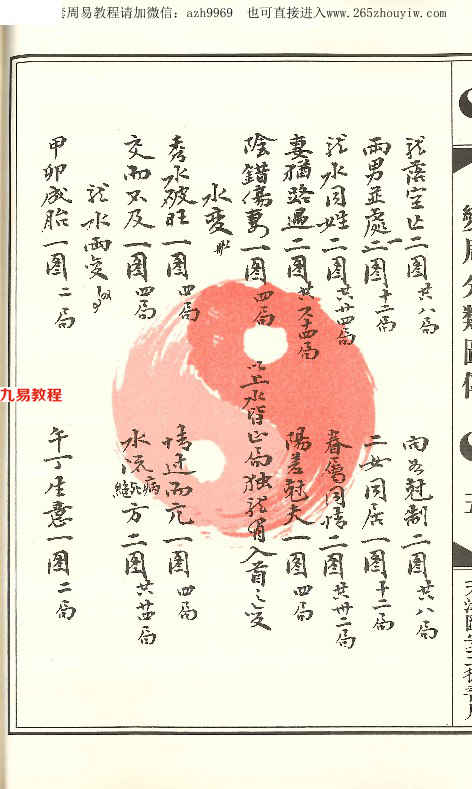 套周易教程请加微信：azh9969 也可直接进入www.265zhouyiw.com
龍蔭空亡二圖共八局 向為尅制二圖共八局
兩男並處一圖十二局 二女同居一圖十二局
龍水同姓二圖共廿四局 眷屬同情二圖共卅二局
妻猶路遇二圖共 四局 陽差尅夫一圖四局
陰錯傷妻一圖四局 以上水皆正局独龍有入首之变
水变
秀水破旺一圖四局 情过而亢一圖四局
交而不及一圖四局 水流病死绝方二圖共廿四局
龍水兩变
甲卯成胎一圖二局 午丁生意一圖二局
九易教程
五